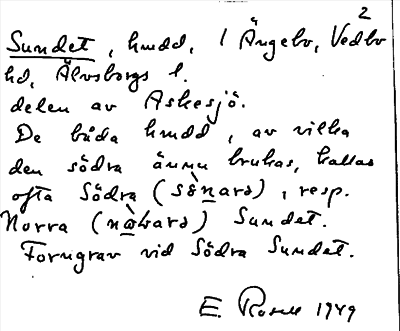 2
Sundet, hmdd, i Ängebo, Vedbo
hd, Älvsborgs l.
delen av Askesjö.
De båda hmdd, av vilka
den södra ännu brukas, kallas
ofta Södra (sö̀nara), resp.
Norra (nàrara) Sundet.
Forngrav vid Södra Sundet.
E. 1949